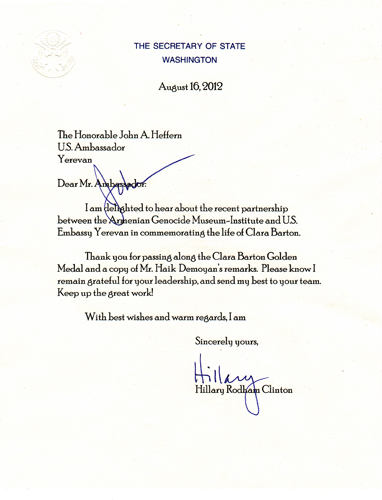 THE SECRETARY OF STATE
WASHINGTON
August 16, 2012
The Honorable John A. Heffern
U.S. Ambassador
Yerevan
Dear Mr. Ambassador:
John
I am delighted to hear about the recent partnership
between the Armenian Genocide Museum-Institute and U.S.
Embassy Yerevan in commemorating the life of Clara Barton.
Thank you for passing along the Clara Barton Golden
Medal and a copy of Mr. Haik Demoyan's remarks. Please know I
remain grateful for your leadership, and send my best to your team.
Keep up the great work!
With best wishes and warm regards, I am
Sincerely yours,
Hillary
Hillary Rodham Clinton